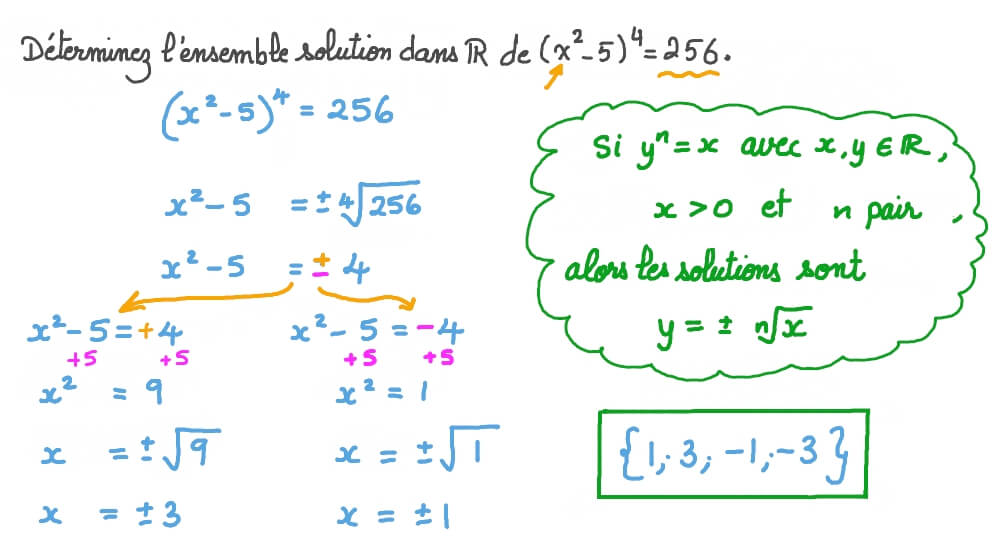 Déterminez l'ensemble solution dans ℝ de (x²-5)⁴=256.
(x²-5)⁴ = 256
x²-5 = ± ⁴√256
x²-5 = ± 4
x²-5=+4
+5 +5
x² = 9
x = ±√9
x = ±3
x²-5 = -4
+5 +5
x² = 1
x = ±√1
x = ±1
Si yⁿ = x avec x, y ∈ ℝ,
x > 0 et n pair,
alors les solutions sont
y = ± ⁿ√x
{1, 3, -1, -3}